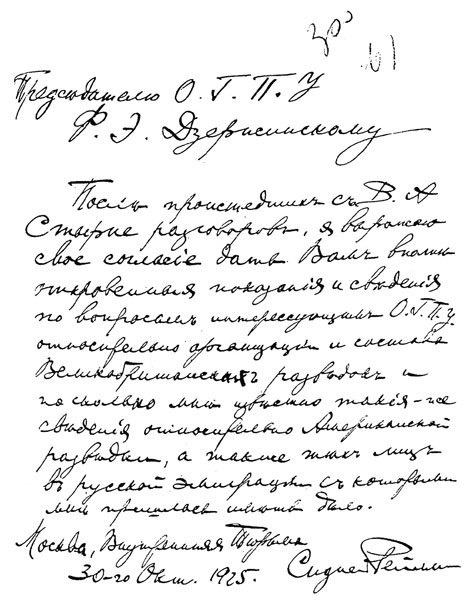 30
61
Председателю О. Г. П. У
Ф. Э. Дзержинскому
После происшедшихъ съ В. А
Стырне разговоровъ, я выражаю
свое согласіе дать Вамъ вполнѣ
откровенныя показанія и свѣдѣнія
по вопросамъ интересующимъ О.Г.П.У
относительно организаціи и состава
Великобританскихъ разведокъ и
по сколько мнѣ извѣстно такія-же
свѣдѣнія относительно Американской
разведки, а также тѣхъ лицъ
въ русской эмиграціи съ которыми
мнѣ пришлось имѣть дѣло.
Москва, Внутренняя Тюрьма
30-го Окт. 1925. Сидней Рейлли